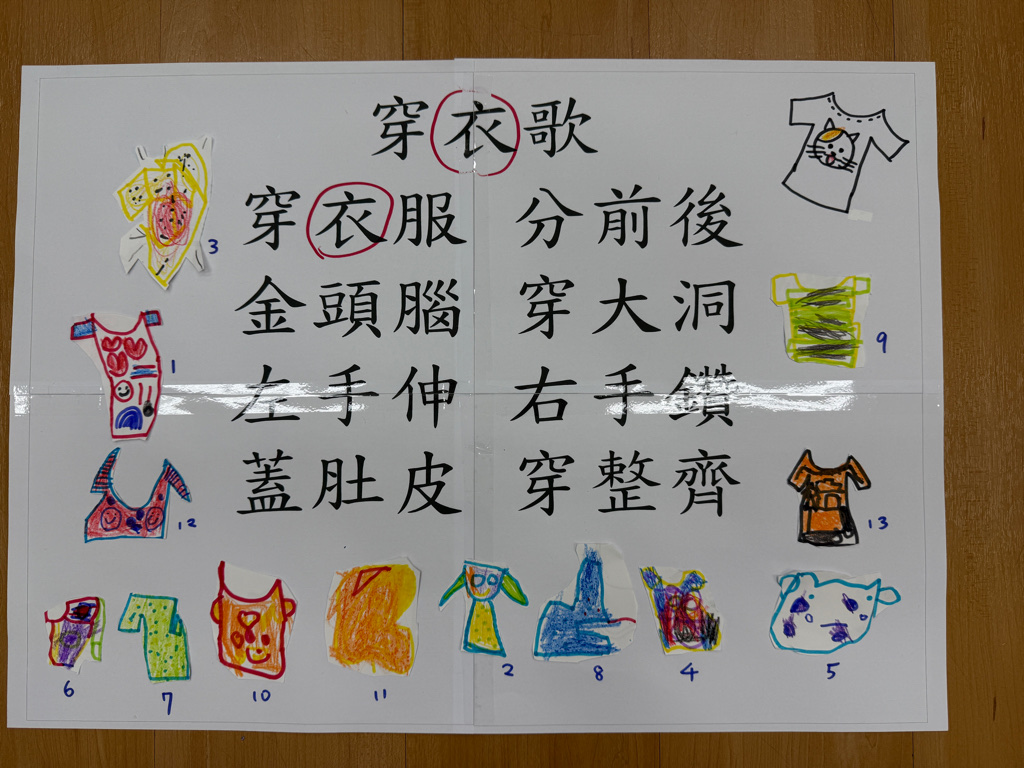 穿衣歌
穿衣服 分前後
金頭腦 穿大洞
左手伸 右手鑽
蓋肚皮 穿整齊
3
1
12
9
13
6
7
10
11
2
8
4
5